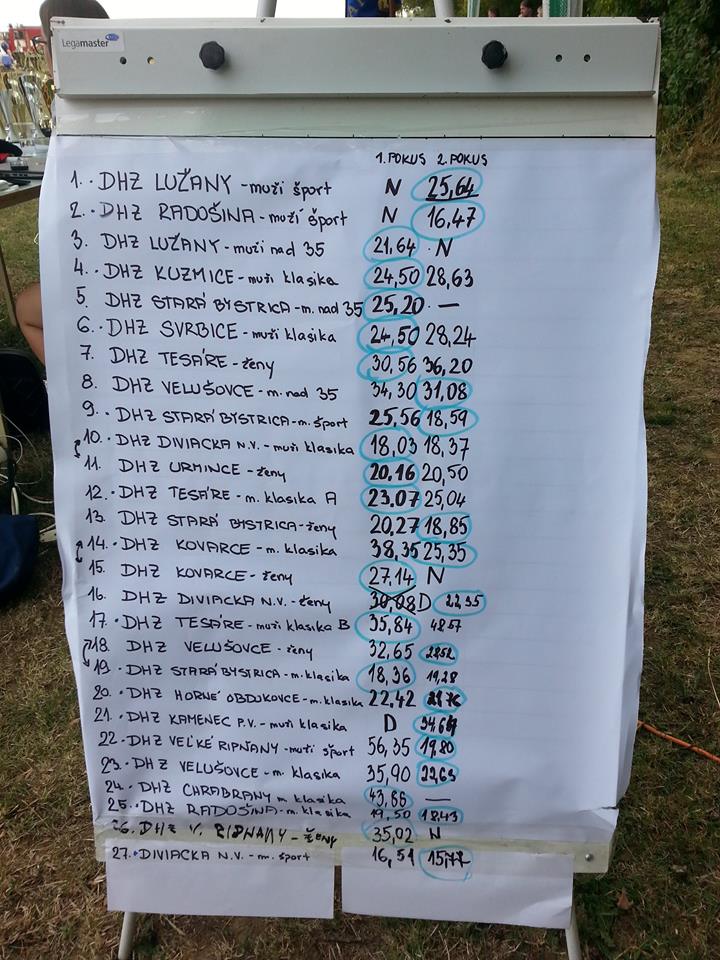 Legamaster
1. POKUS 2. POKUS
1. DHZ LUŽANY - muži šport N 25,64
2. DHZ RADOŠINA - muži šport N 16,47
3. DHZ LUŽANY - muži nad 35 21,64 N
4. DHZ KUZMICE - muži klasika 24,50 28,63
5. DHZ STARÁ BYSTRICA - m. nad 35 25,20 —
6. DHZ SVRBICE - muži klasika 24,50 28,24
7. DHZ TESÁRE - ženy 30,56 36,20
8. DHZ VELUŠOVCE - m. nad 35 34,30 31,08
9. DHZ STARÁ BYSTRICA - m. šport 25,56 18,59
10. DHZ DIVIACKA N.V. - muži klasika 18,03 18,37
11. DHZ URMINCE - ženy 20,16 20,50
12. DHZ TESÁRE - m. klasika A 23,07 25,04
13. DHZ STARÁ BYSTRICA - ženy 20,27 18,85
14. DHZ KOVARCE - m. klasika 38,35 25,35
15. DHZ KOVARCE - ženy 27,14 N
16. DHZ DIVIACKA N.V. - ženy 30,08 D 22,55
17. DHZ TESÁRE - muži klasika B 35,84 48,57
18. DHZ VELUŠOVCE - ženy 32,65
19. DHZ STARÁ BYSTRICA - m. klasika 18,36 19,28
20. DHZ HORNÉ OBDOKOVCE - m. klasika 22,42
21. DHZ KAMENEC P.V. - muži klasika D
22. DHZ VEĽKÉ RIPŇANY - muži šport 56,35 19,80
23. DHZ VELUŠOVCE - m. klasika 35,90 22,63
24. DHZ CHRABRANY m. klasika 43,86 —
25. DHZ RADOŠINA - m. klasika 19,50 18,43
26. DHZ V. RIPŇANY - ŽENY 35,02 N
27. DIVIACKA N.V. - m. šport 16,51 15,77